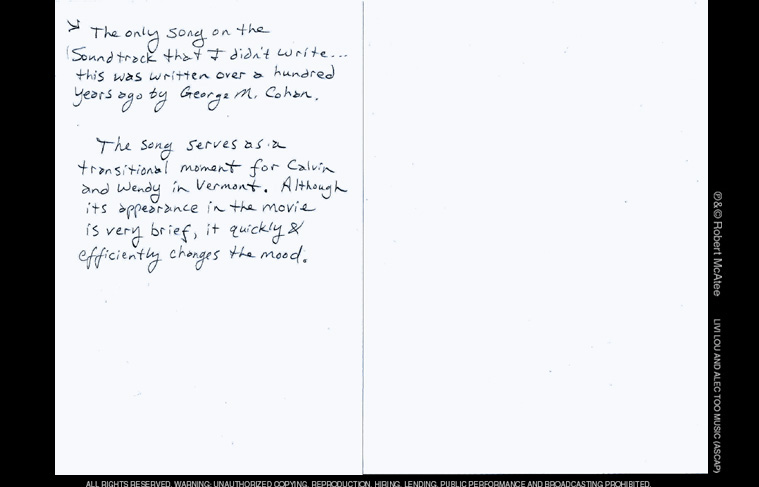 The only song on the
soundtrack that I didn't write...
this was written over a hundred
years ago by George M. Cohan.
The song serves as a
transitional moment for Calvin
and Wendy in Vermont. Although
its appearance in the movie
is very brief, it quickly &
efficiently changes the mood.
℗ & © Robert McAtee LIVI LOU AND ALEC TOO MUSIC (ASCAP)
ALL RIGHTS RESERVED. WARNING: UNAUTHORIZED COPYING, REPRODUCTION, HIRING, LENDING, PUBLIC PERFORMANCE AND BROADCASTING PROHIBITED.